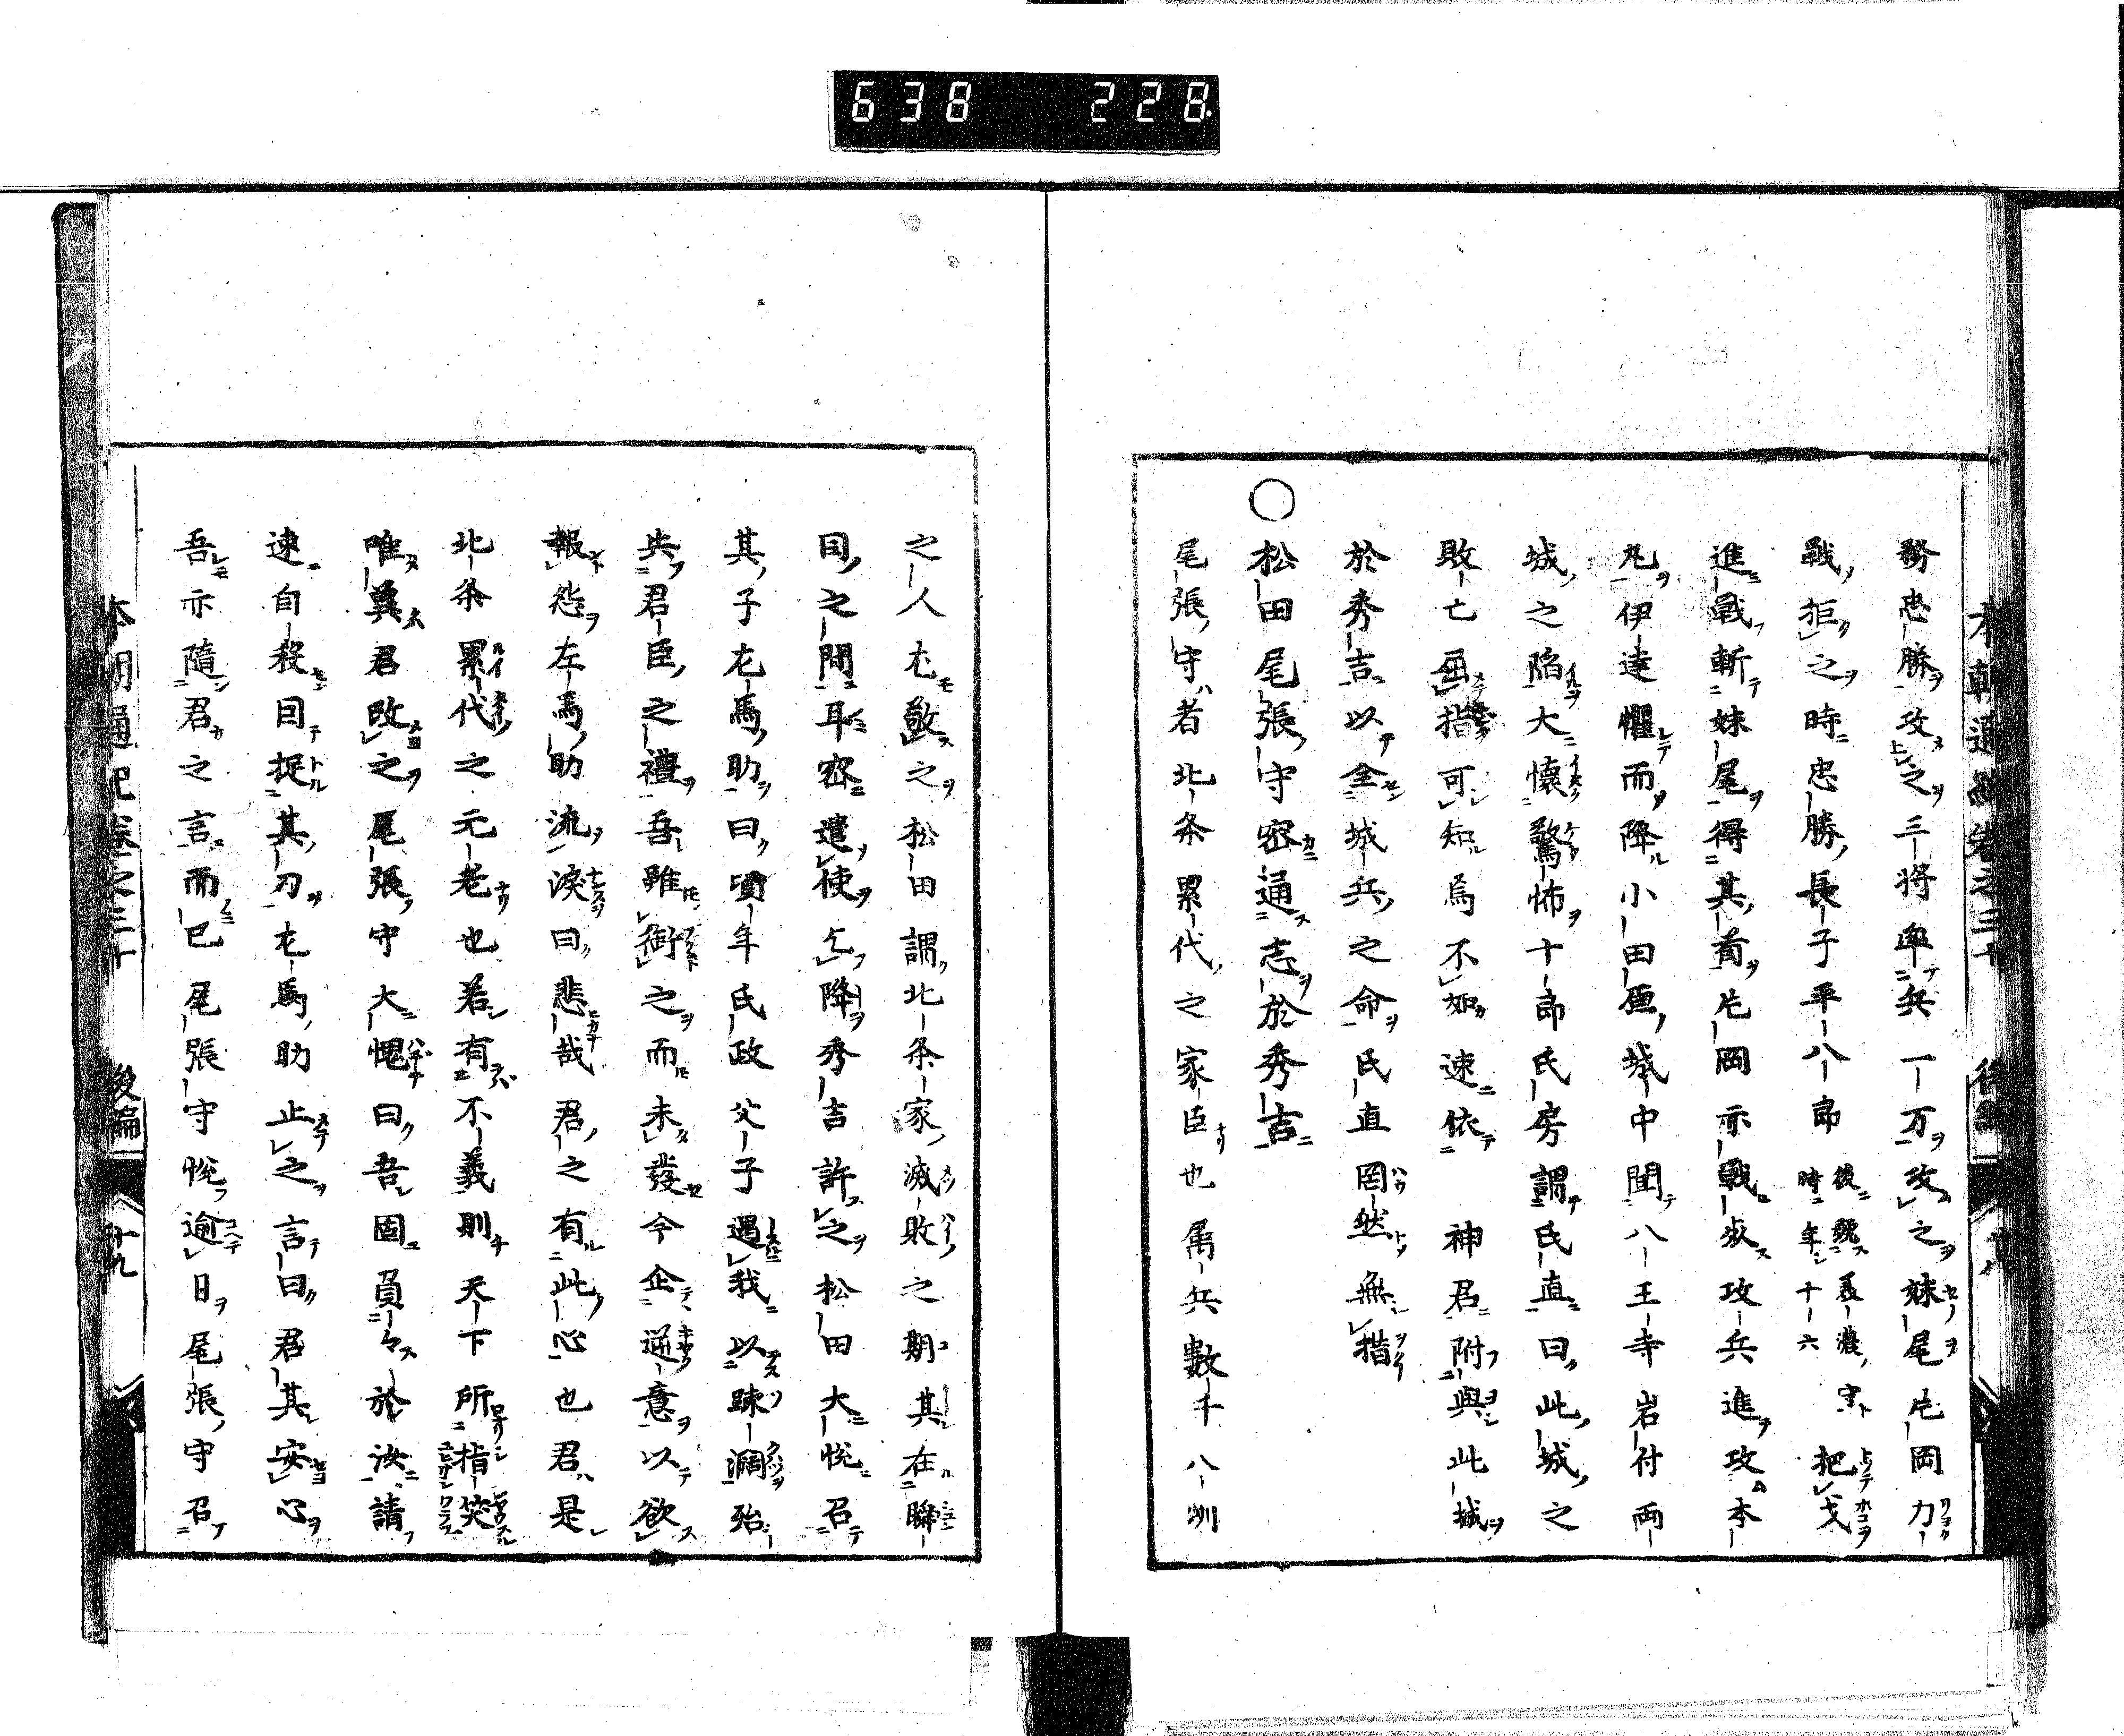 638 228
本朝通紀卷之三十 後編 十八
務忠勝攻之三将率兵一万攻之妹尾片岡力
戰拒之時忠勝長子平八郎後號美濃守時年十六把戈
進戰斬妹尾得其首片岡亦戰歿攻兵進攻本
丸伊達懼而降小田原城中聞八王寺岩付両
城之陥大懐驚怖十郎氏房謂氏直曰此城之
敗亡屈指可知焉不如速依神君附與此城
於秀吉以全城兵之命氏直罔然無措
○松田尾張守密通志於秀吉
尾張守者北条累代之家臣也属兵數千八州
之人尤敬之松田謂北条家滅敗之期其在瞬
目之間耳密遣使乞降秀吉許之松田大悦召
其子左馬助曰頃年氏政父子遇我以疎濶殆
失君臣之禮吾雖銜之而未發今企逆意以欲
報怨左馬助流涙曰悲哉君之有此心也君是
北条累代之元老也若有不義則天下所指笑
唯冀君改之尾張守大愧曰吾固負々於汝請
速自殺目捉其刀左馬助止之言曰君其安心
吾亦隨君之言而已尾張守悦逾日尾張守召
本朝通紀卷之三十 後編 十九